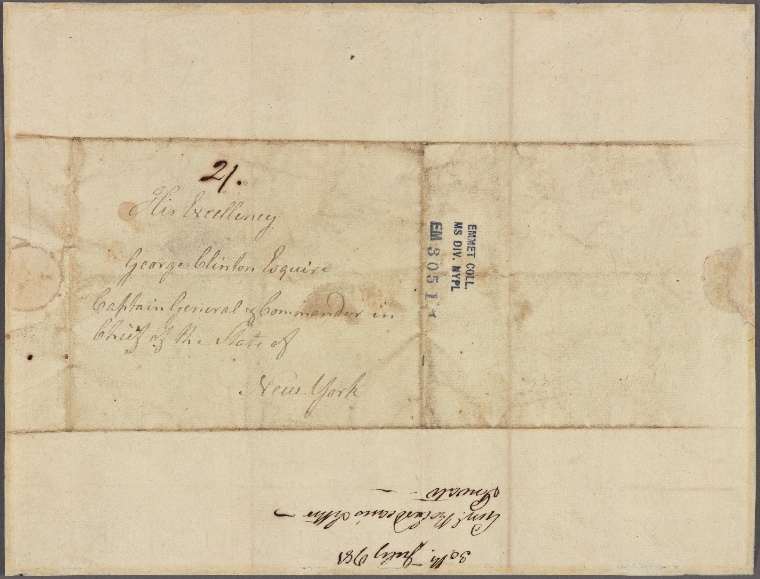 21.
His Excellency
George Clinton Esquire
Captain General & Commander in
Chief of the State of
New York
EMMET COLL.
MS DIV. NYPL
EM 3051
30th July 1781
Genl.